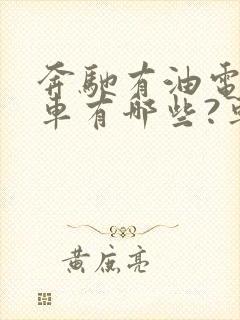 奔馳有油電
車有哪些?
黃庭亮